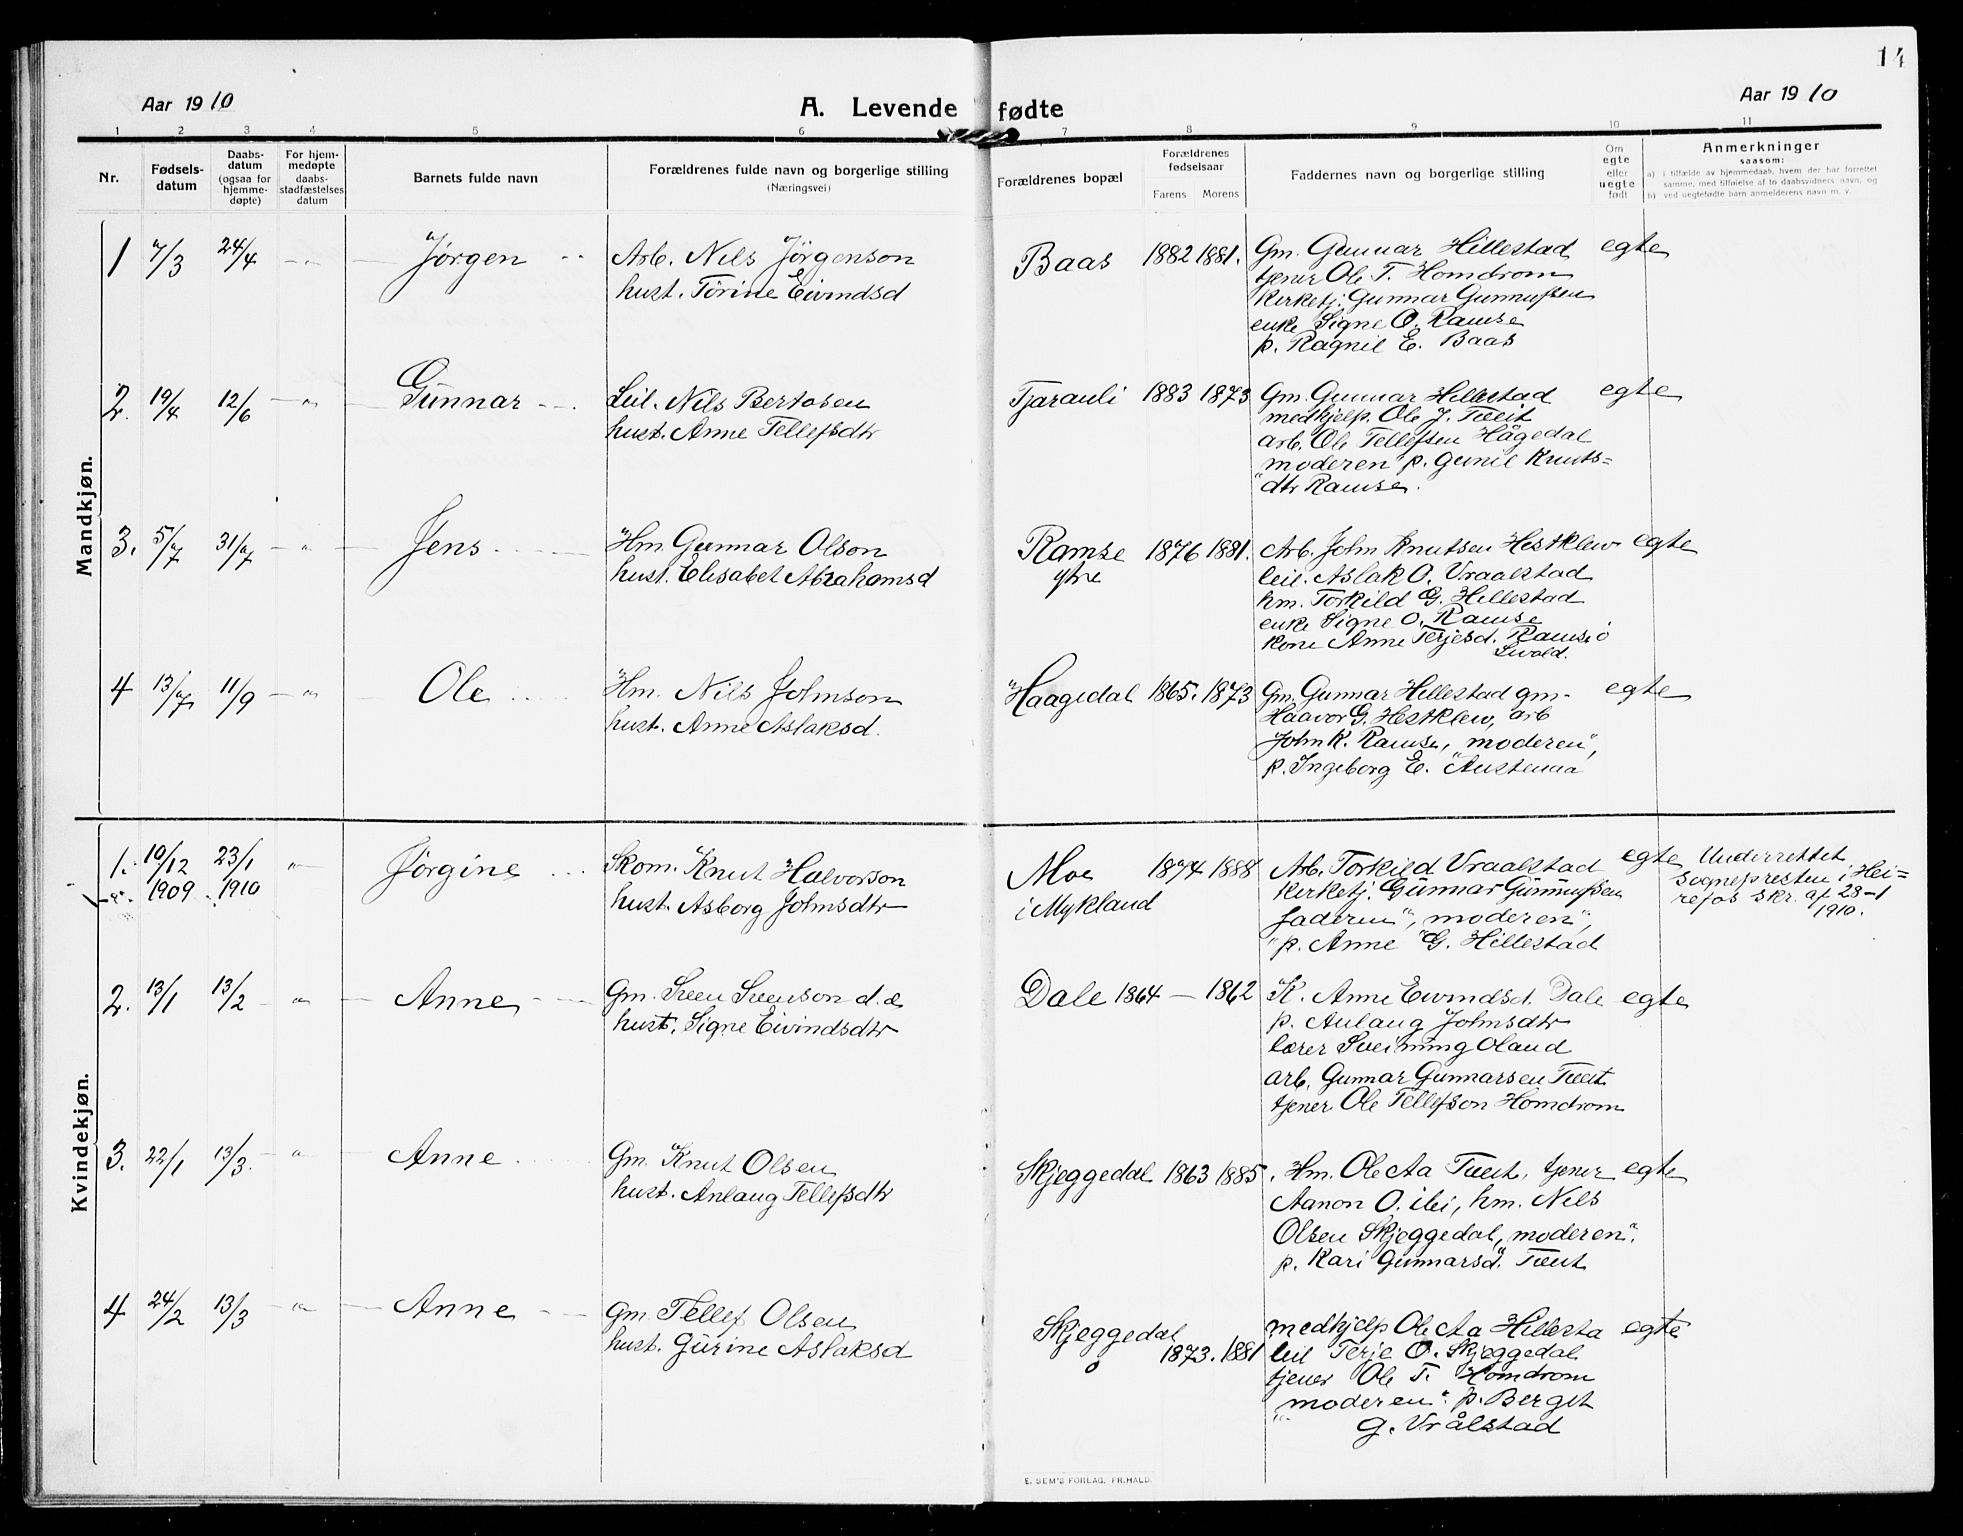 14
Aar 1910
A. Levende fødte
Aar 1910
1 2 3 4 5 6 7 8 9 10 11
Nr.
Fødsels-
datum
Daabs-
datum
(ogsaa for
hjemme-
døpte)
For hjem-
medøpte
daabs-
stadfæstelses
datum
Barnets fulde navn
Forældrenes fulde navn og borgerlige stilling
(Næringsvei)
Forældrenes bopæl
Forældrenes
fødselsaar
Farens Morens
Faddernes navn og borgerlige stilling
Om
egte
eller
uegte
født
Anmerkninger
saasom:
a) i tilfælde av hjemmedaab, hvem der har forrettet
samme, med tilføielse af to daabsvidners navn, og
b) ved uegtefødte barn anmelderens navn m. v.
Mandkjøn.
1 7/3 24/4 - " - Jørgen
Arb. Nils Jørgenson
hust. Torine Eivindsd
Baas 1882 1881.
Gm. Gunnar Hillestad
tjener Ole T. Homdrom
Kirketj. Gunnar Gunnufsen
enke Signe O. Ramse
p. Ragnil E. Baas
egte
2. 19/4 12/6 - " - Gunnar
Leil. Nils Bertosen
hust. Anne Tellefsdtr
Tjarauli 1883 1873
Gm. Gunnar Hillestad
medhjelp. Ole J. Tveit
arb. Ole Tellefsen Hågedal
"moderen" p. Gunil Knuts=
dtr Ramse.
egte
3. 5/7 31/7 - " - Jens
Hm. Gunnar Olson
hust. Elisabet Abrahamsd
Ramse
ytre
1876 1881.
Arb. John Knutsen Hestklev
leil. Aslak O. Vraalstad
hm. Torkild G. Hillestad
enke Signe O. Ramse
kone Anne Terjesd. Ramse
egte
4 13/7 11/9 - " - Ole
Hm. Nils Johnson
hust. Anne Aslaksd.
Haagedal 1865. 1873
Gm. Gunnar Hillestad gm.
Haavor G. Hestklev, arb
John K. Ramse, "moderen",
p. Ingeborg E. Austenaa
egte
Kvindekjøn.
1. 10/12 1909 23/1 1910 " Jørgine
Skom. Knut Halvorson
hust. Asborg Johnsdtr
Moe
i Mykland
1874 1888
Arb. Torkild Vraalstad
Kirketj. Gunnar Gunnufsen
"faderen", "moderen",
p. Anne G. Hillestad
egte
Underrettet
sognepresten i Hei=
refos skr. af 28-1
1910.
2. 13/1 13/2 - " - Anne
Gm. Sven Svenson d. æ
hust. Signe Eivindsdtr
Dale 1864 - 1862
K. Anne Eivindsd. Dale
p. Anlaug Johnsdtr
lærer Sveinung Oland
arb. Gunnar Gunnarsen Tveit
tjener Ole Tellefson Homdrom
egte
3. 22/1 13/3 - " - Anne
Gm. Knut Olsen
hust. Anlaug Tellefsdtr
Skjeggedal 1863 1885
Hm. Ole Aa Tveit, tjener
Aanon O. Lei, hm. Nils
Olsen Skjeggedal, "moderen".
p. Kari Gunnarsd. Tveit
egte
4 24/2 13/3 - " - Anne
Gm. Tellef Olsen
hust. Gurine Aslaksd
Skjeggedal
1873. 1881
medhjelp Ole Aa Hillesta
leil Terje O. Skjeggedal
tjener Ole T. Homdrom
"moderen". p. Berget
G. Vrålstad
egte
E. SEM'S FORLAG, FR.HALD.